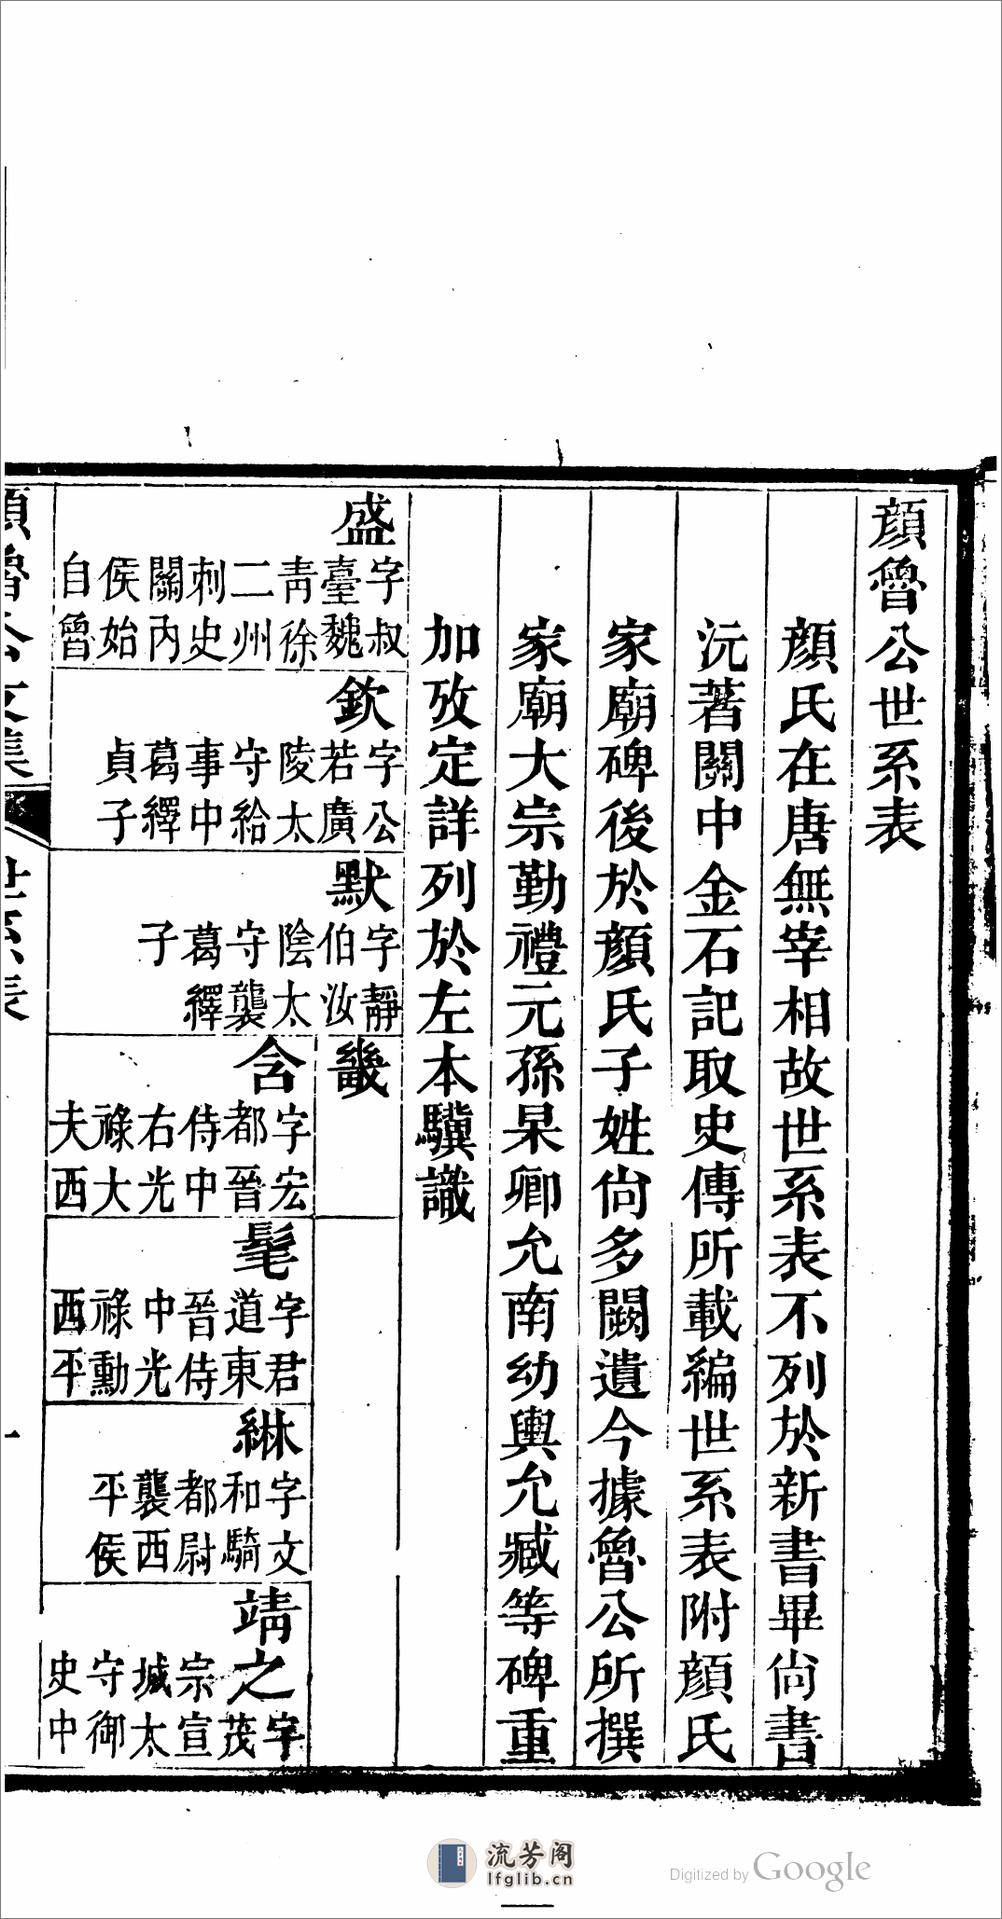 顔魯公世系表
顔氏在唐無宰相故世系表不列於新書畢尙書
沅著關中金石記取史傳所載編世系表附顔氏
家廟碑後於顔氏子姓尙多闕遺今據魯公所撰
家廟大宗勤禮元孫杲卿允南幼輿允臧等碑重
加攷定詳列於左本驥識
盛
字叔
臺魏
靑徐
二州
刺史
關內
侯始
自魯
欽
字公
若廣
陵太
守給
事中
葛繹
貞子
默
字靜
伯汝
陰太
守襲
葛繹
子
畿
含
字宏
都晉
侍中
右光
祿大
夫西
髦
字君
道東
晉侍
中光
祿勳
西平
綝
字文
和騎
都尉
襲西
平侯
靖之
字
茂
宗宣
城太
守御
史中
顔魯公文集
世系表
一
流芳阁
lfglib.cn
Digitized by Google